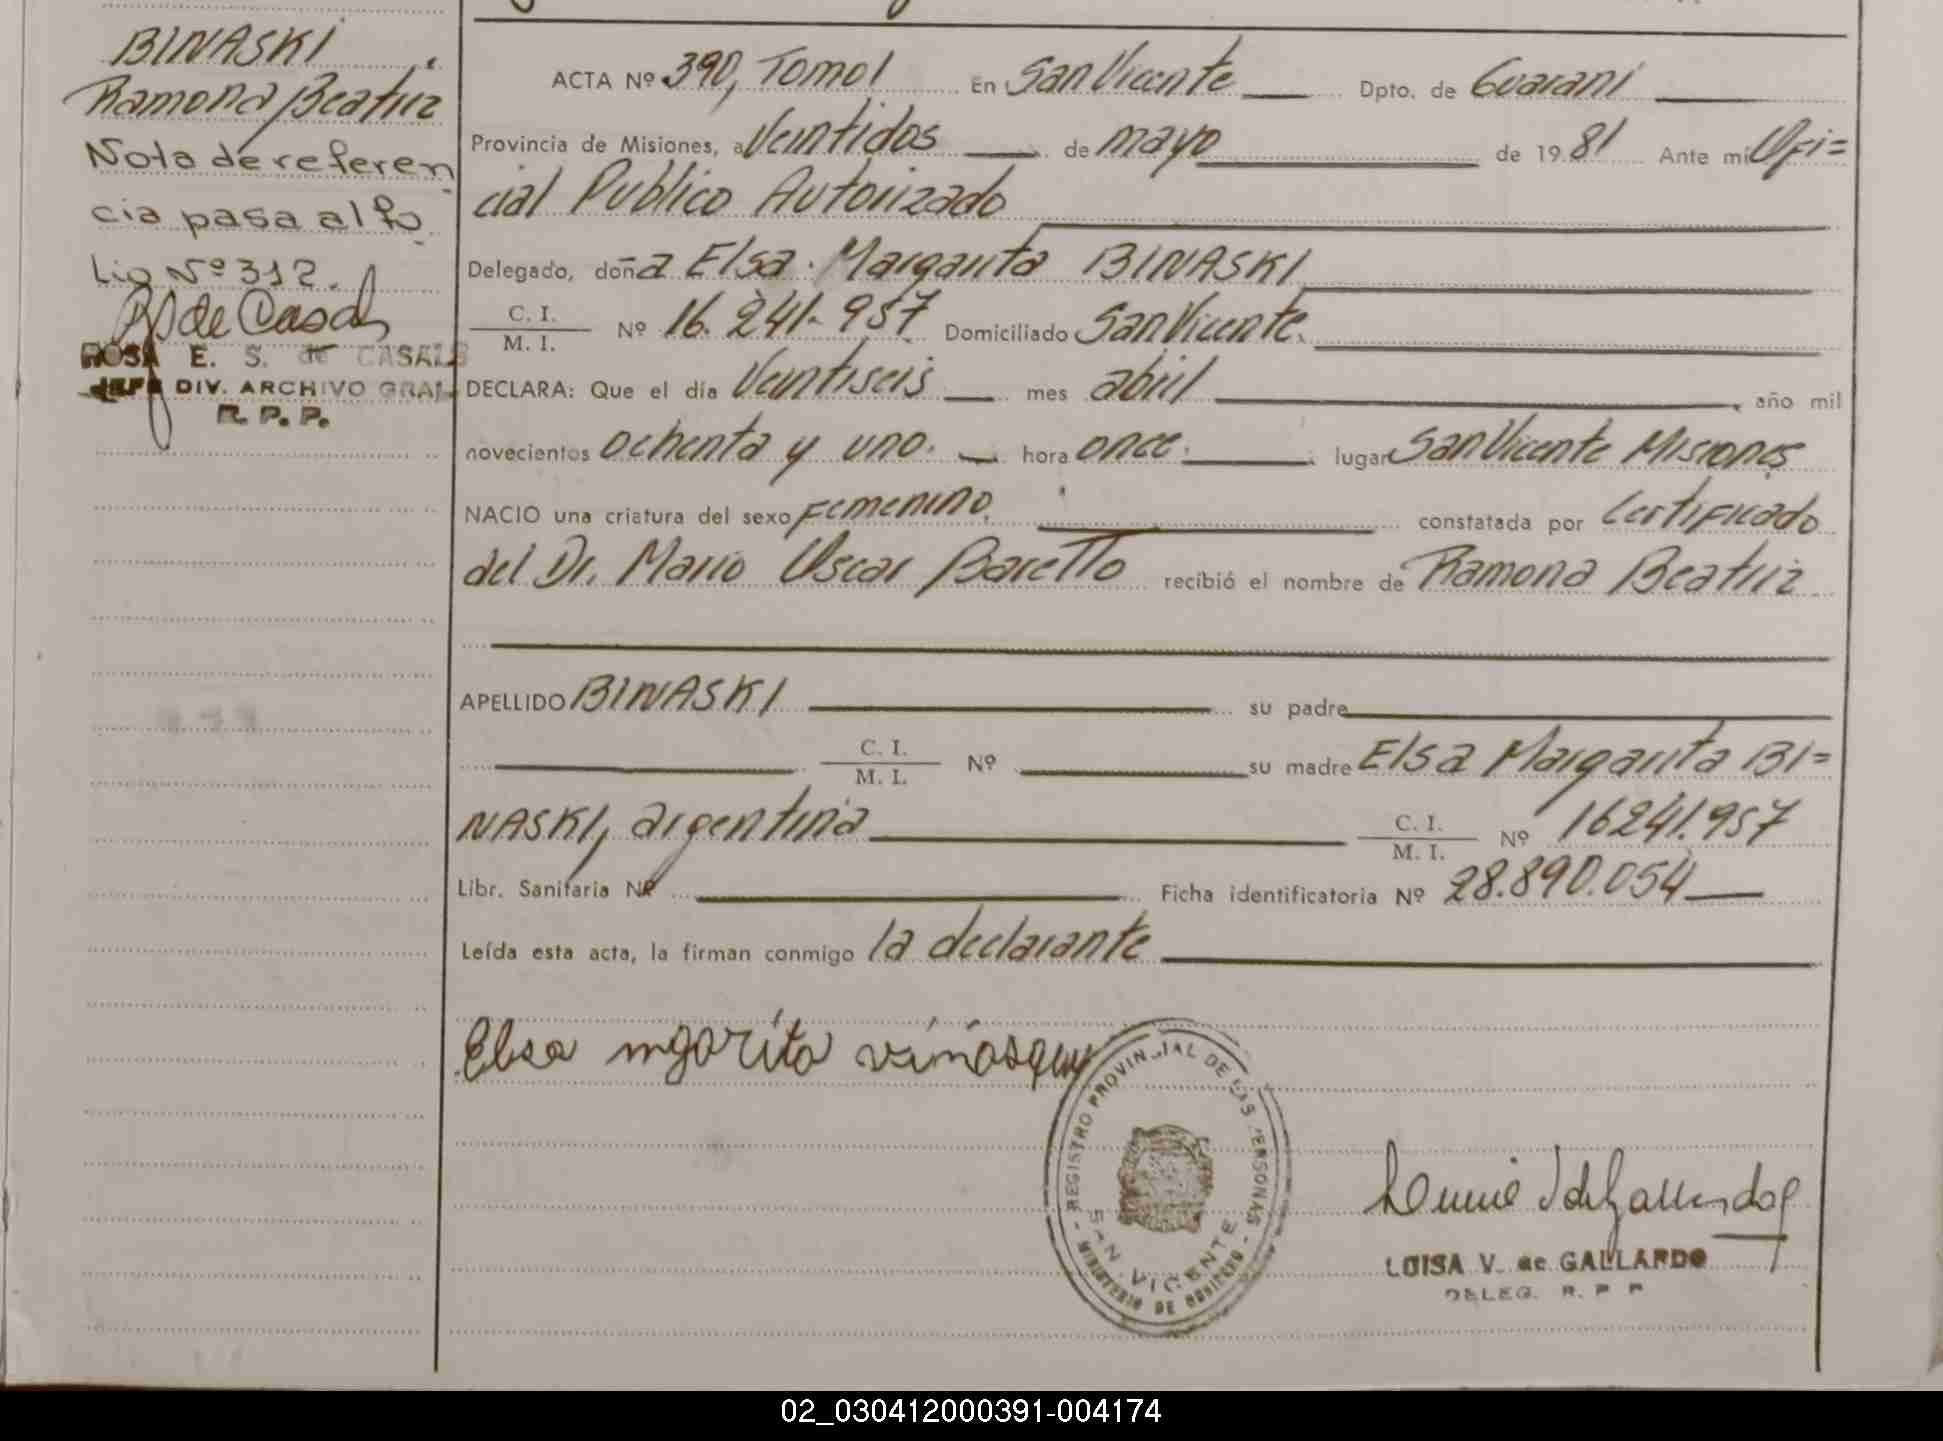 BINASKI
Ramona Beatriz
Nota de referen
cia pasa al fo
Lio Nº 312.
ROSA E. S. de CASALS
JEFE DIV. ARCHIVO GRAL
R. P. P.
ACTA Nº 390, Tomo I En San Vicente Dpto. de Guaraní
Provincia de Misiones, a Veintidos de mayo de 1981 Ante mi Ofi=
cial Publico Autorizado
Delegado, doña Elsa Margarita BINASKI
C. I.
M. I. Nº 16.241.957 Domiciliado San Vicente.
DECLARA: Que el día Veintiseis mes abril, año mil
novecientos ochenta y uno. hora once. lugar San Vicente Misiones
NACIO una criatura del sexo Femenino, constatada por Certificado
del Dr. Mario Oscar Baretto recibió el nombre de Ramona Beatriz
APELLIDO BINASKI su padre
C. I.
M. I. Nº su madre Elsa Margarita BI=
NASKI, argentina C. I.
M. I. Nº 16241.957
Libr. Sanitaria Nº Ficha identificatoria Nº 28.890.054
Leída esta acta, la firman conmigo la declarante
Elsa mgarita viñasquy
REGISTRO PROVINCIAL DE LAS PERSONAS
SAN VICENTE
MINISTERIO DE GOBIERNO
LUISA V. de GALLARDO
DELEG. R. P. P.
02_030412000391-004174